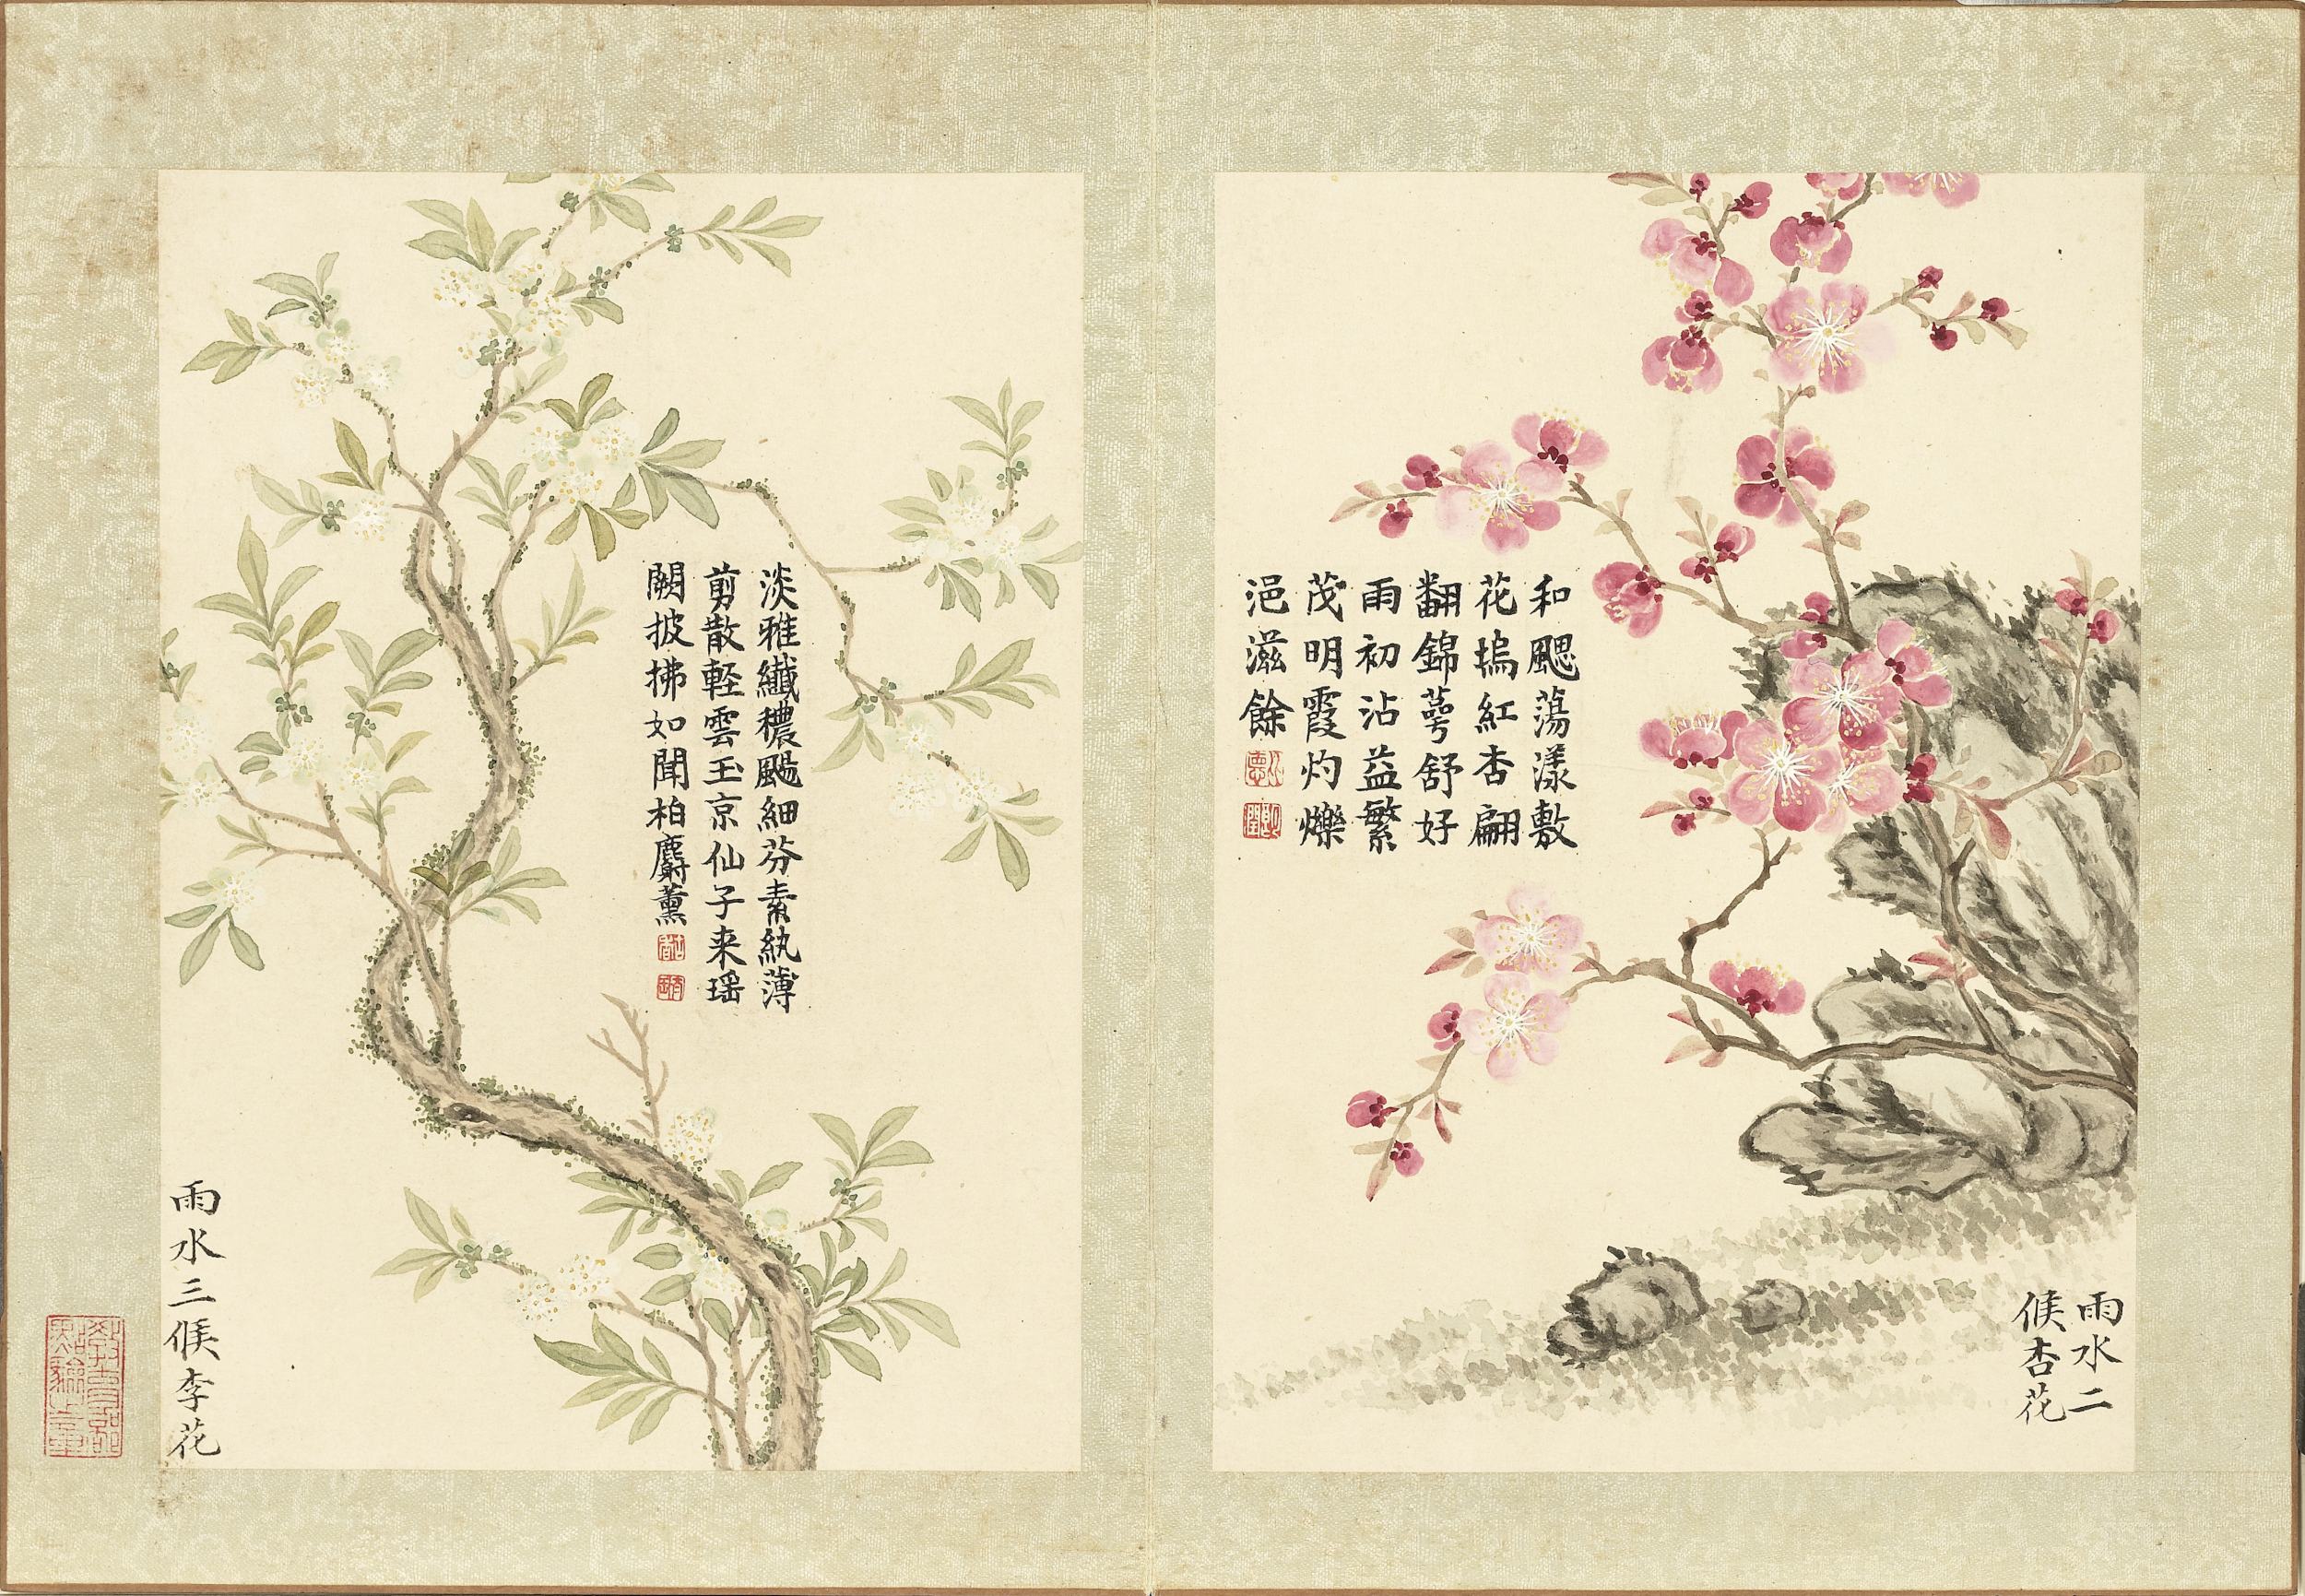 和颸蕩漾敷
花塢紅杏翩
翻錦萼舒好
雨初沾益繁
茂明霞灼爍
浥滋餘
雨水二
候杏花
淡雅纖穠颺細芬素紈薄
剪散軽雲玉京仙子来瑶
闕披拂如聞柏麝薰
雨水三候李花